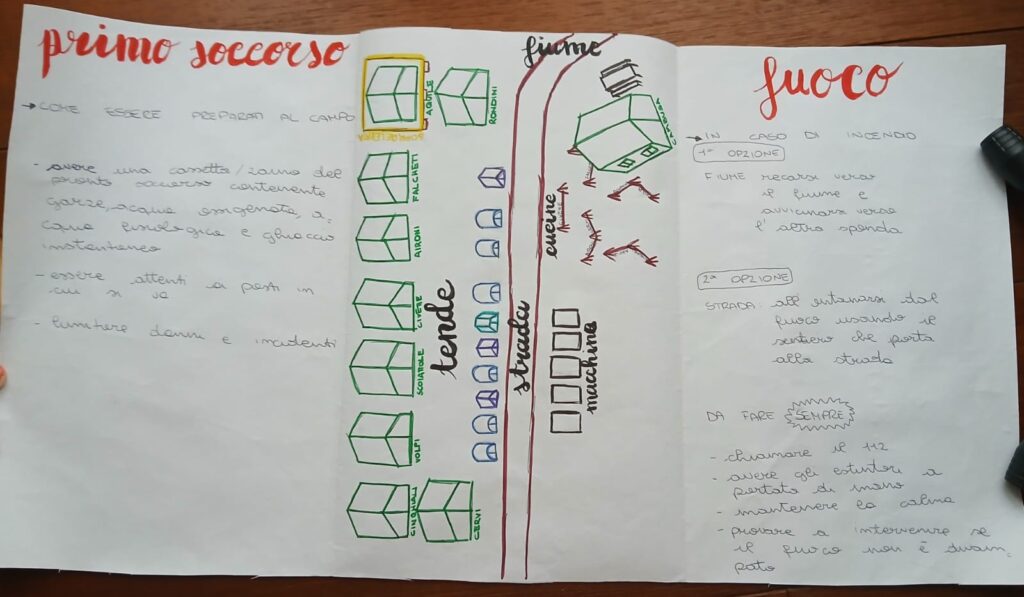 primo soccorso
→ COME ESSERE PREPARATI AL CAMPO
- avere una cassetta/zaino del
pronto soccorso contenente
garze, acqua ossigenata, a,
cqua fisiologica e ghiaccio
instantaneo
- essere attenti a posti in
cui si va
- limitare danni e incidenti
fiume
AQUILE
RONDINI
FALCHETI
AIRONI
CIVETTE
SCOIATTOLE
VOLPI
CINGHIALI
CERVI
tende
strada
CAMBUSA
cucine
macchine
fuoco
→ IN CASO DI INCENDIO
1ª OPZIONE
FIUME recarsi verso
il fiume e
avvicinarsi verso
l'altra sponda
2ª OPZIONE
STRADA: allontanarsi dal
fuoco usando il
sentiero che porta
alla strada
DA FARE SEMPRE
- chiamare il 112
- avere gli estintori a
portata di mano
- mantenere la calma
- provare a intervenire se
il fuoco non è divam,
pato